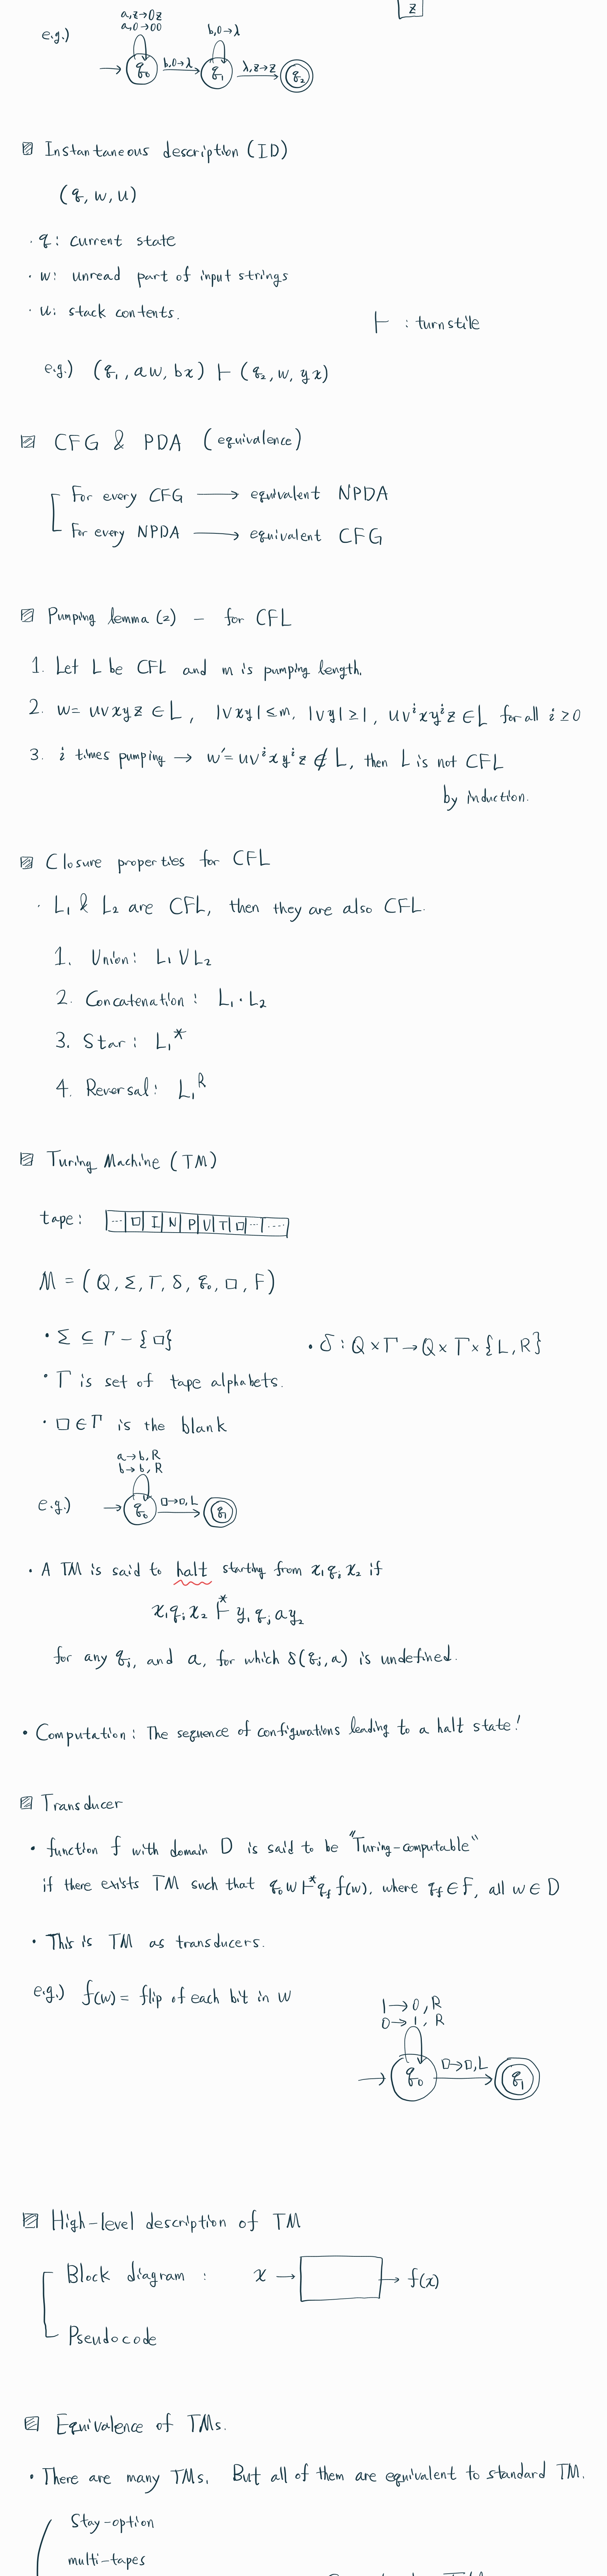 z
a,z→0z
a,0→00
b,0→λ
e.g.)
q₀ b,0→λ q₁ λ,z→z q₂
Instantaneous description (ID)
(q, w, u)
· q : current state
· w: unread part of input strings
· u: stack contents.
⊢ : turnstile
e.g.) (q₁, aw, bx) ⊢ (q₂, w, yx)
CFG & PDA (equivalence)
For every CFG → equivalent NPDA
For every NPDA → equivalent CFG
Pumping lemma (2) - for CFL
1. Let L be CFL and m is pumping length.
2. w = uvxyz ∈ L, |vxy| ≤ m, |vy| ≥ 1, uvⁱxyⁱz ∈ L for all i ≥ 0
3. i times pumping → w' = uvⁱxyⁱz ∉ L, then L is not CFL
by induction.
Closure properties for CFL
· L₁ & L₂ are CFL, then they are also CFL.
1. Union: L₁ ∪ L₂
2. Concatenation : L₁ · L₂
3. Star : L₁*
4. Reversal: L₁ᴿ
Turing Machine (TM)
tape: ... □ I N P U T □ ... ....
M = (Q, Σ, Γ, δ, q₀, □, F)
• Σ ⊆ Γ - {□}
• δ : Q × Γ → Q × Γ × {L, R}
• Γ is set of tape alphabets.
• □ ∈ Γ is the blank
a→b, R
b→b, R
e.g.) q₀ □→□, L q₁
• A TM is said to halt starting from x₁qᵢx₂ if
x₁qᵢx₂ ⊢* y₁qⱼay₂
for any qⱼ, and a, for which δ(qⱼ, a) is undefined.
• Computation : The sequence of configurations leading to a halt state!
Transducer
• function f with domain D is said to be "Turing-computable"
if there exists TM such that q₀w ⊢* q_f f(w), where q_f ∈ F, all w ∈ D
• This is TM as transducers.
e.g.) f(w) = flip of each bit in w
1→0, R
0→1, R
q₀ □→□, L q₁
High-level description of TM
Block diagram : x → → f(x)
Pseudocode
Equivalence of TMs.
• There are many TMs. But all of them are equivalent to standard TM.
Stay-option
multi-tapes